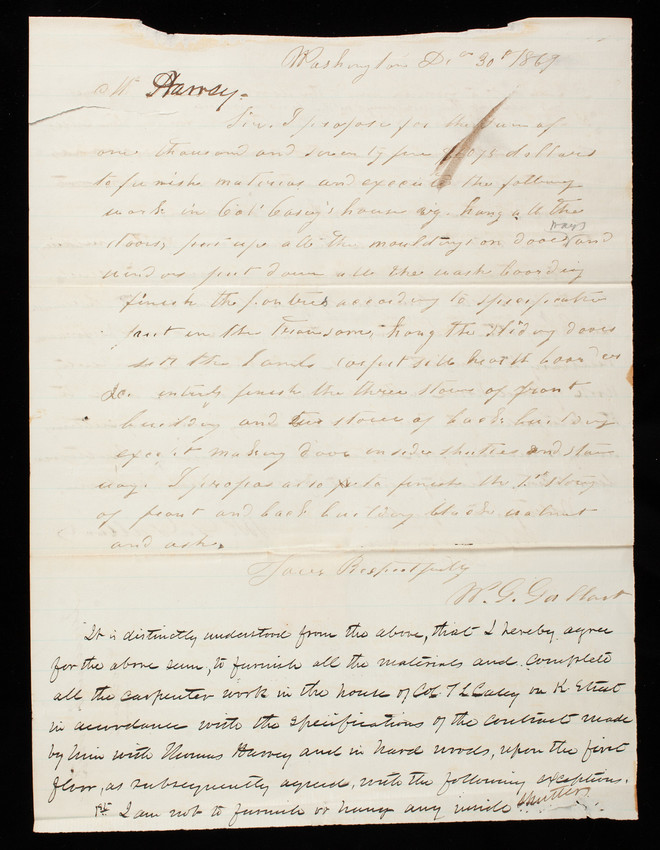 Washington Dec 30th 1869
Mr Harvey.
Sir. I propose for the sum of
one thousand and seventy five dollars
to furnish materias and execute the following
work in Col Casey's house eg. hang all the
doors, put up all the mouldings on doors and
windows put down all the wash boarding
finish the pantries according to specification
put in the Transoms, hang the sliding doors
sett the hearth boarders
&c. entirly finish the three stories of front
building and two stories of back building
except making doors inside shutters and stair
way. I propos also to finish the 1st story
of front and back building black walnut
and ashe,
Yours Respectfully
W. G.
It is distinctly understood from the above, that I hereby agree
for the above sum, to furnish all the materials and complete
all the carpenter work in the house of Col T L Casey on K Street
in accordance with the specifications of the contract made
by him with Thomas Harvey and in hard woods, upon the first
floor, as subsequently agreed, with the following exceptions.
1st I am not to furnish or hang any inside shutters.